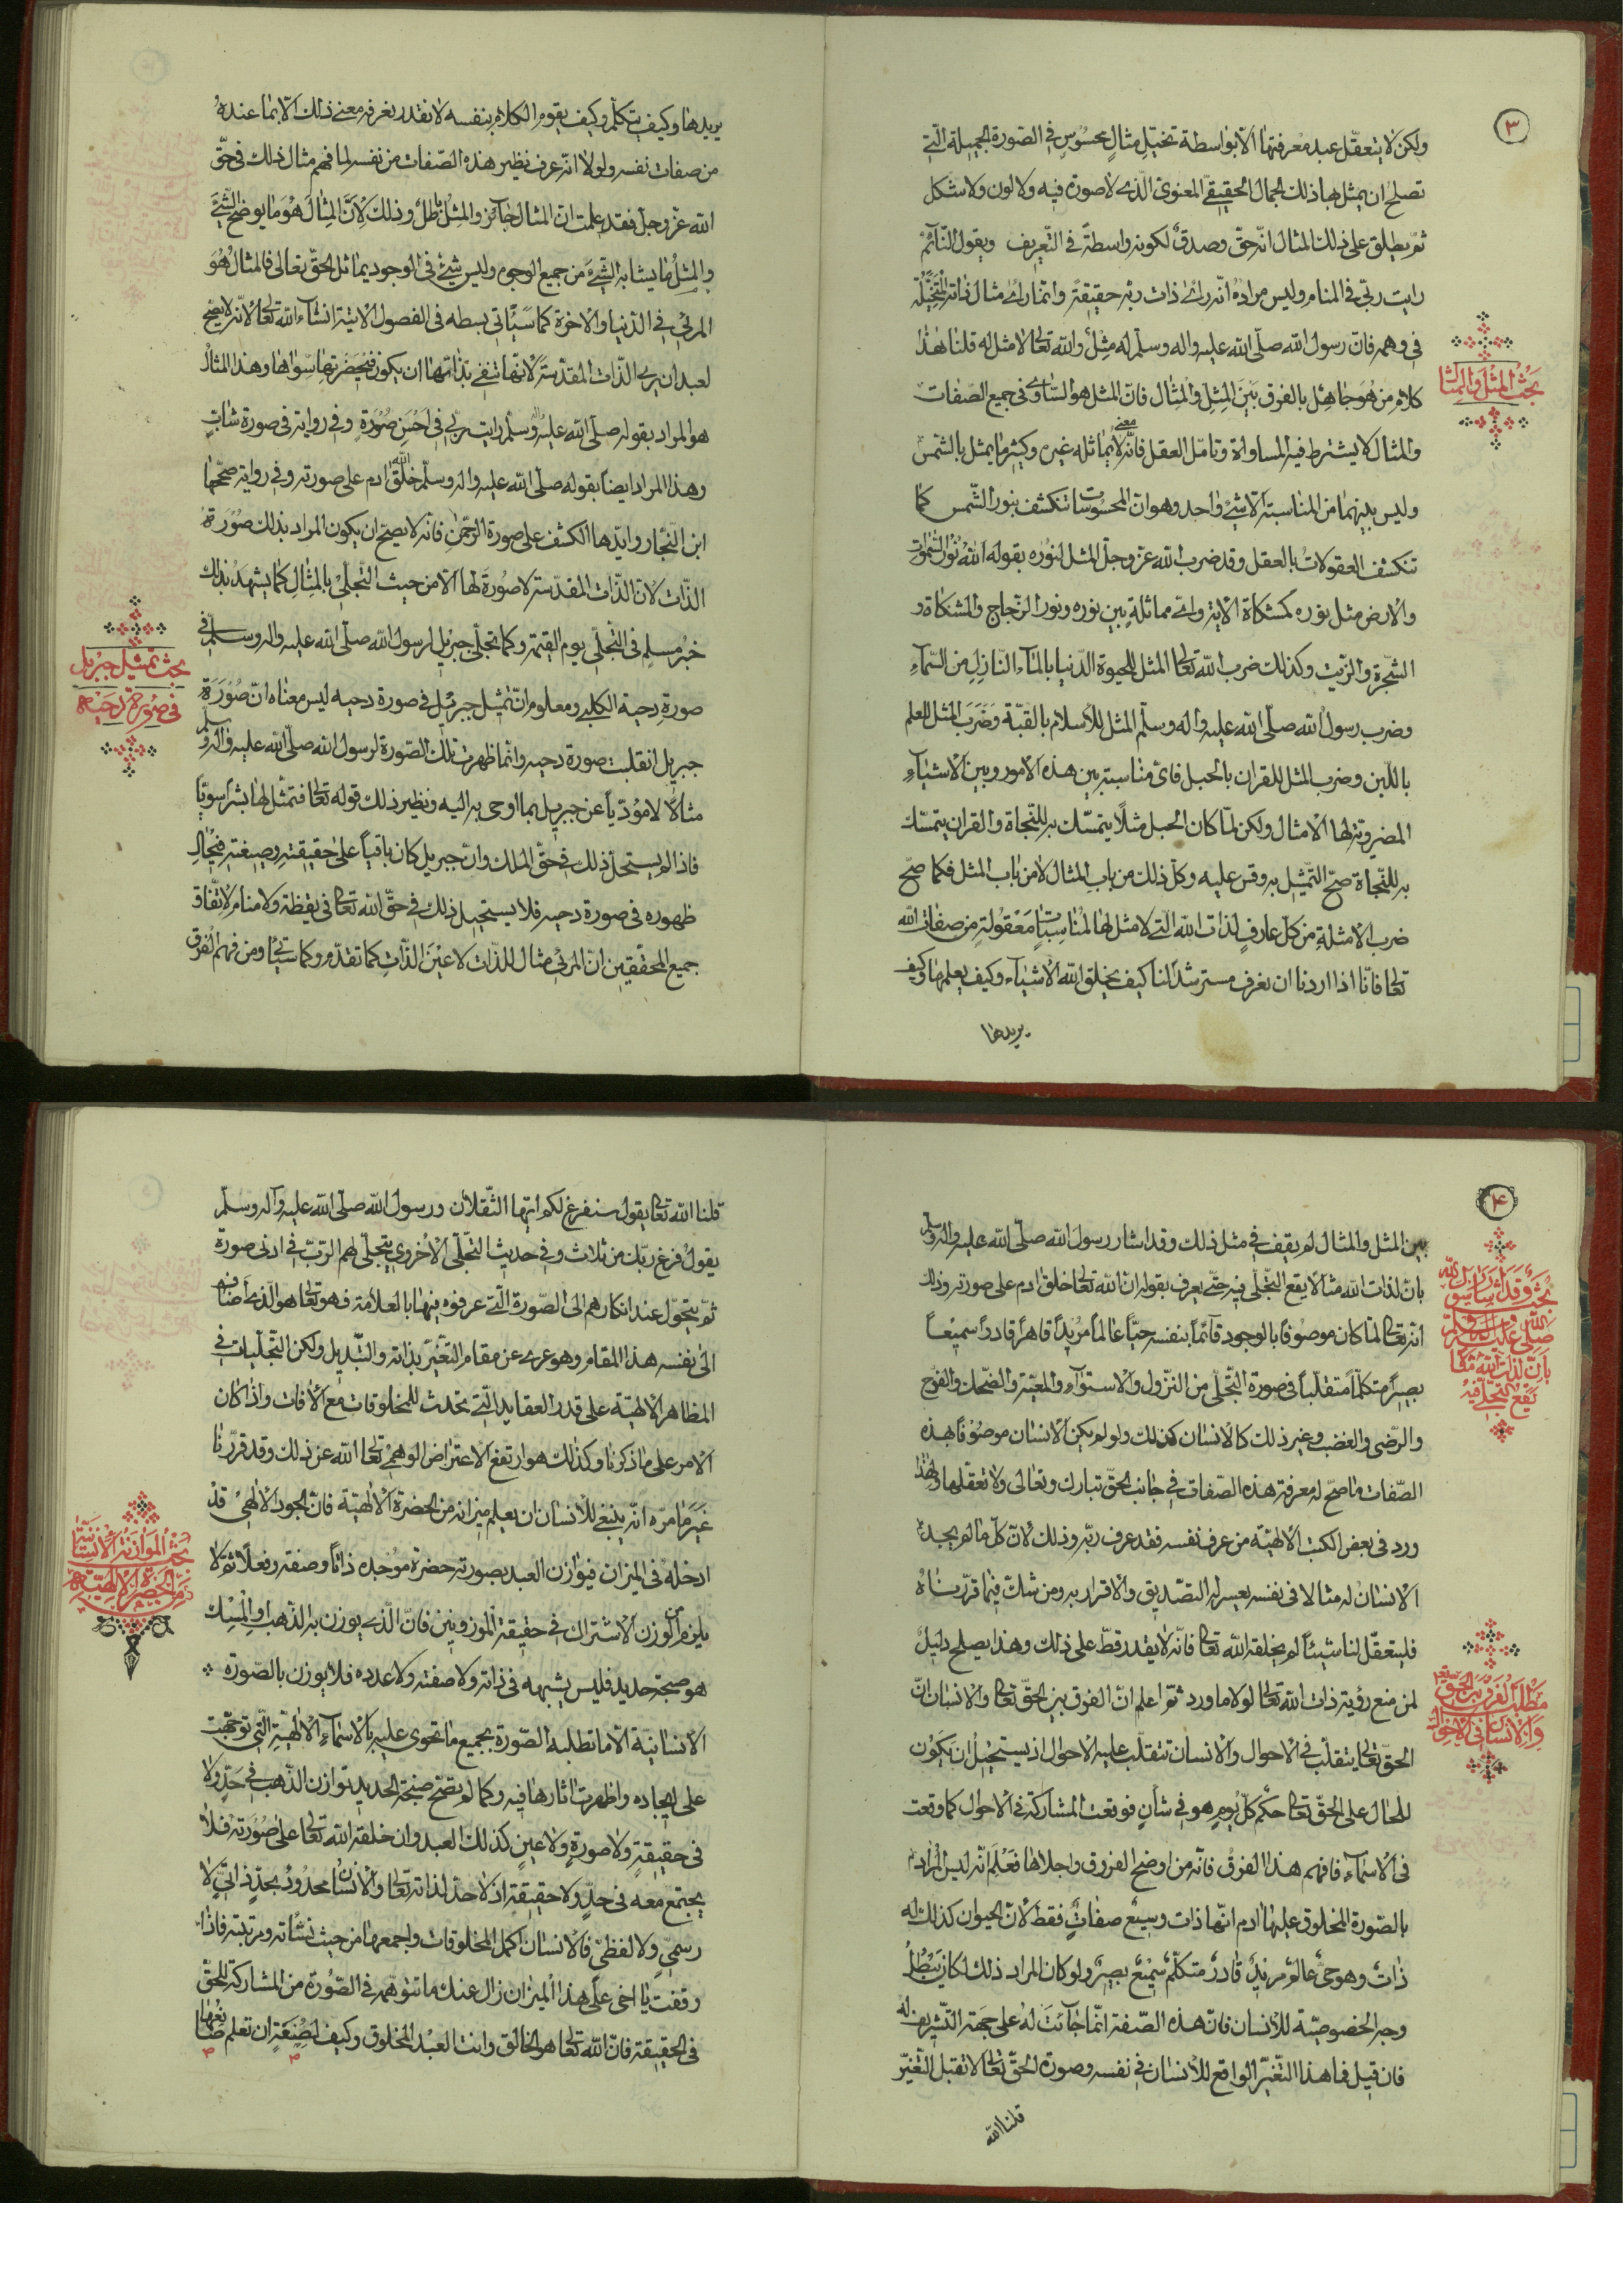 ٣
ولكن لا يتعقّل عبد معرفتها الّا بواسطة تخيّل مثالٍ محسُوسٍ في الصّورة الجميلة الّتي
تصلح ان يمثل بها ذلك الجمال الحقيقيّ المعنوى الّذى لا صورة فيه ولا لون ولا شكل
ثمّ يطلق على ذلك المثال انّه حقّ وصدقٌ لكونه واسطةً في التّعريف ويقول النّائم
رايت ربّي في المنام وليس مراده انّه راى ذات ربّه حقيقةً وانّما راى مثال ذاته المتخيّلة
في وهمه فان رسول الله صلّى الله عليه واله وسلّم له مِثل والله تعالى لا مثل له قلنا هذا
بحث المثل والمثال
كلام من هو جاهل بالفرق بين المِثل والمِثال فانّ المثل هو المتساوى في جميع الصّفات
والمثال لا يشترط فيه المساواة وتامّل العقل فانّه معنى لا يماثله غيره وكثيرما يمثل بالشمس
وليس بينهما من المناسبة الّا شئ واحد وهو انّ المحسُوسات تنكشف بنور الشّمس كما
تنكشف المعقولات بالعقل وقد ضرب الله عزّ وجلّ المثل لنُوره بقوله الله نُور السّموات
والارض مثل نوره كمشكاة الاية واىّ مماثلةٍ بين نوره ونور الزّجاج والمشكاة و
الشّجرة والزّيت وكذلك ضرب الله تعالى المثل للحيوة الدّنيا بالماء النّازل من السّماء
وضرب رسول الله صلّى الله عليه واله وسلّم المثل للاسلام بالقبّة وضَرَب المثل للعلم
باللّبن وضرب المثل للقران بالحبل فاىّ مناسبة بين هذه الامور وبين الاشياء
المضروبة لها الامثال ولكن لمّا كان الحبل مثلاً يتمسّك به للنّجاة والقران يتمسّك
به للنّجاة صحّ التّمثيل به وقس عليه وكلّ ذلك من باب المثال لا من باب المثل فكما صحّ
ضرب الامثلة من كلّ عارفٍ لذات الله الّتي لا مثل لها لمُناسباتٍ معقولةٍ من صفات الله
تعالى فانّا اذا اردنا ان نعرف مسترشدًا لنا كيف يخلق الله الاشياء وكيف يعلمها وكيف
يريدها
يريدها وكيف يتكلّم وكيف يقوم الكلام بنفسه لا نقدر نعرفه معنى ذلك الّا بما عندهُ
من صفات نفسه ولولا انّه عرف نظير هذه الصّفات من نفسه لما فهم مثال ذلك في حقّ
الله عزّ وجلّ فقد علمت انّ المثال جائز والمِثل باطل وذلك لانّ المِثال هو ما يوضح الشّئ
والمِثل ما يشابه الشّئ من جميع الوجوه وليس شئ في الوجود يماثل الحقّ تعالى فالمثال هُوَ
المرئيّ في الدّنيا والاخرة كما سَيَأتي بسطه في الفصول الاتية انشاء الله تعالى لانّه لا يصحّ
لعبدان يرى الذّات المقدّسة لانّها تنفي بذاتها ان يكون في حضرتها سواها وهذا المثال
هو المراد بقوله صلّى الله عليه واله وسلّم رايت ربّي في احسن صُورَةٍ وفي رواية في صورة شابٍّ
وهذا المراد ايضاً بقوله صلّى الله عليه واله وسلّم خلق الله ادم على صورته وفي رواية صحّحها
ابن النّجّار وايّدها الكشف على صورة الرّحمٰن فانّه لا يصحّ ان يكون المراد بذلك صُوَرة
الذّات لانّ الذّات المقدّسة لا صُورة لها الّا من حيث التّجلّي بالمِثال كما يشهد بذلك
خبر مسلم في التّجلّي يوم القيمة وكما تجلّى جبريل لرسول الله صلّى الله عليه واله وسلّم في
بحث تمثيل جبريل
في صورة دحيه
صورة دحية الكلبي ومعلوم انّ تمثيل جبريل في صورة دحيه ليس معناه انّ صُورَة
جبريل انقلبت صورة دحيه وانّما ظهرت تلك الصّورة لرسول الله صلّى الله عليه واله وسلم
مثالاً لا مؤدّياً عن جبريل بما اوحى به اليه ونظير ذلك قوله تعالى فتمثّل لها بشراً سويًّا
فاذا لم يستحل ذلك في حقّ الملك وانّ جبريل كان باقياً على حقيقته وصِبغته في حال
ظهوره في صورة دحيه فلا يستحيل ذلك في حقّ الله تعالى في يقظة ولا منام لاتّفاق
جميع المحقّقين انّ المرئيّ مثال للذّات لا عين الذّات كما تقدّم وكما سيأتي ومن فهم الفرق
٤
بين المثل والمثال لم يقف في مثل ذلك وقد اشار رسول الله صلّى الله عليه واله وسلم
بحث وقد اشار رسول الله
صلى الله عليه واله وسلم
بان لذات الله مثالا
يقع التجلى فيه
بانّ لذات الله مثالاً يقع التّجلّي فيه حتّى يعرف بقوله انّ الله تعالى خلق ادم على صورته وذلك
انّه تعالى لمّا كان موصُوفًا بالوجود قائمًا بنفسه حيًّا عالماً مُريدًا قاهراً قادراً سميعًا
بصيراً متكلّماً متقلّباً في صورة التّجلّي من النزول والاستواء والمعيّة والضّحك والفرح
والرّضى والغضب وغير ذلك كالانسان كذلك ولو لم يكن الانسان موصُوفًا بهذه
الصّفات ما صحّ له معرفة هذه الصّفات في جانب الحقّ تبارك وتعالى ولا تعقّلها ولهذا
ورد في بعض الكتب الالهيّة من عرف نفسه فقد عرف ربّه وذلك لانّ كلّ ما لم يجد
الانسان له مثالا في نفسه يعسر له التصديق والاقرار به ومن شكّ فيما قرّرناه
فليتعقّل لنا شيئاً لم يخلقه الله تعالى فانّه لا يقدر قطّ على ذلك وهذا يصلح دليلٌ
لمن منع رؤية ذات الله تعالى لولا ما ورد ثمّ اعلم انّ الفرق بين الحقّ تعالى والانسان انّ
مطلب الفرق بين الحق تعالى
والانسان في الاحوال
الحقّ تعالى يتقلّب في الاحوال والانسان تتقلّب عليه الاحوال اذ يستحيل ان يكون
للحال على الحقّ تعالى حكم كلّ يومٍ هو في شأنٍ فوقعت المشاركة في الاحوال كما وقعت
في الاسماء فافهم هذا الفرق فانّه من اوضح الفروق واجلاها فعُلِم انّه ليس المُراد
بالصّورة المخلوق عليها ادم انّها ذات وسبعُ صفاتٍ فقط لانّ الحيوان كذلك له
ذاتٌ وهو حيٌّ عالم مريدٌ قادرٌ متكلّم سميعٌ بصيرٌ ولو كان المراد ذلك لكان يبطُلُ
وجه الخصوصيّة للانسان فانّ هذه الصّفة انّما جائت له على جهة التّشريف له
فان قيل فما هذا التّغيّر الواقع للانسان في نفسه وصورة الحقّ تعالى لا تقبل التّغيّر
قلنا الله
قلنا الله تعالى يقول سنفرغ لكم ايّها الثّقلان ورسول الله صلّى الله عليه واله وسلّم
يقول فرغ ربّك من ثلاث وفي حديث التّجلّي الاخروي يتجلّى لهم الرّبّ في ادنى صورة
ثمّ يتحوّل عند انكارهم الى الصّورة الّتي عرفوه فيها بالعلامة فهو تعالى هو الّذى اضاف
الى نفسه هذا المقام وهو عرى عن مقام التّغيّر بذاته والتّبديل ولكن التّجلّيات في
المظاهر الالهيّة على قدر العقايد الّتي تحدث للمخلوقات مع الافات واذا كان
الامر على ما ذكرنا وكذلك هو ارتفع الاعتراض الوهمي تعالى الله عن ذلك وقد قرّرنا
غير ما مرّه انّه ينبغي للانسان ان يعلم ميزانه من الحضرة الالهيّة فانّ الجود الالهيّ قد
بحث الموازنة الانسانية
من الحضرة الالهية
ادخله في الميزان فيوازن العبد بصورته حضرة موجده ذاتاً وصفةً وفعلاً ثمّ لا
يلزم من الوزن الاشتراك في حقيقة الموزونين فانّ الّذى يوزن به الذّهب او المِسك
هو صبخة حديد فليس يشبهه في ذاته ولا صفته ولا عدده فلا يوزن بالصّورة
الانسانية الّا ما تطلبه الصّورة بجميع ما تحوى عليه بالاسماء الالهيّة الّتي توجّهت
على ايجاده واظهرت اثارها فيه وكما لم يصحّ صبخة الحديد توازن الذّهب في حدٍّ ولا
في حقيقةٍ ولا صورةٍ ولا عينٍ كذلك العبد وان خلقه الله تعالى على صورته فلا
يجتمع معه في حدٍّ ولا حقيقةٍ اذ لا حدّ لذاته تعالى والانسان محدودٌ بحدٍّ ذاتيٍّ لا
رسميٍّ ولا لفظيٍّ فالانسان اكمل المخلوقات واجمعها من حيث نشأته ومرتبته فاذا
وقفت يا اخى على هذا الميزان زال عنك ما تتوهّمه في الصّورة من المشاركة للحقّ
في الحقيقة فانّ الله تعالى هو الخالق وانت العبد المخلوق وكيف لصنعةٍ ان تعلم صانعها